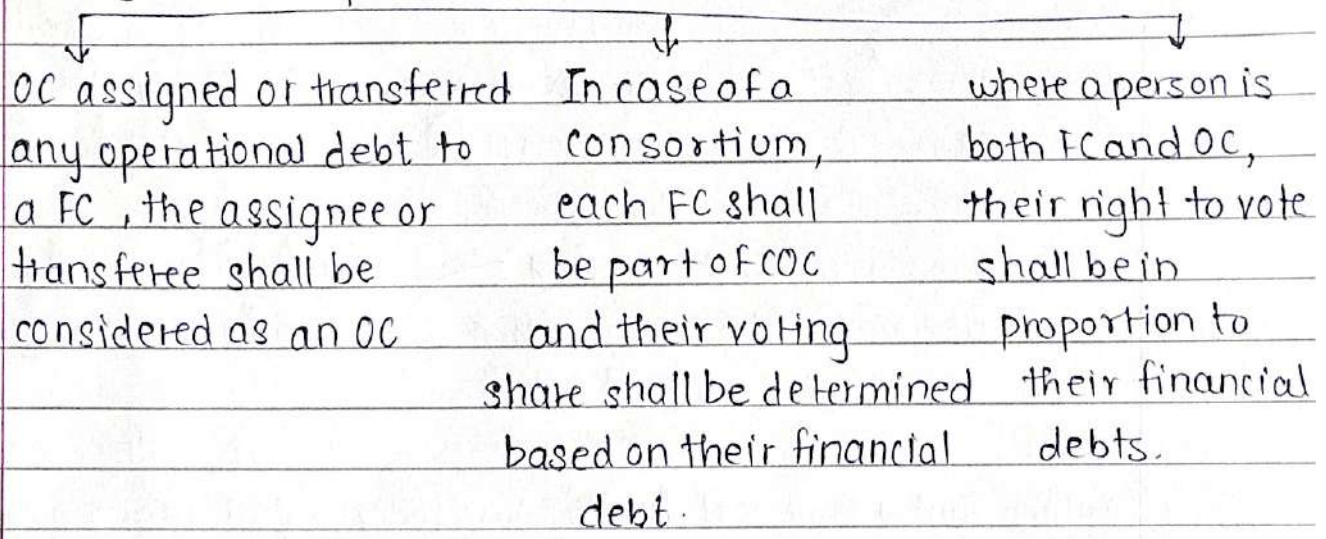 OC assigned or transferred
any operational debt to
a FC, the assignee or
transferee shall be
considered as an OC
In case of a
consortium,
each FC shall
be part of COC
and their voting
share shall be determined
based on their financial
debt.
where a person is
both FC and OC,
their right to vote
shall be in
proportion to
their financial
debts.